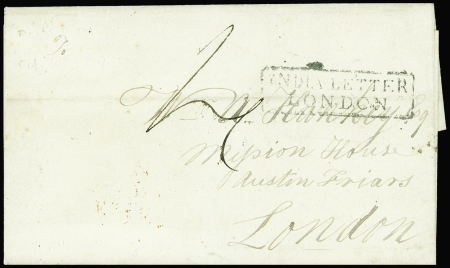 INDIA LETTER
LONDON
W. A. Hankey Esq
Mission House
Austin Friars
London